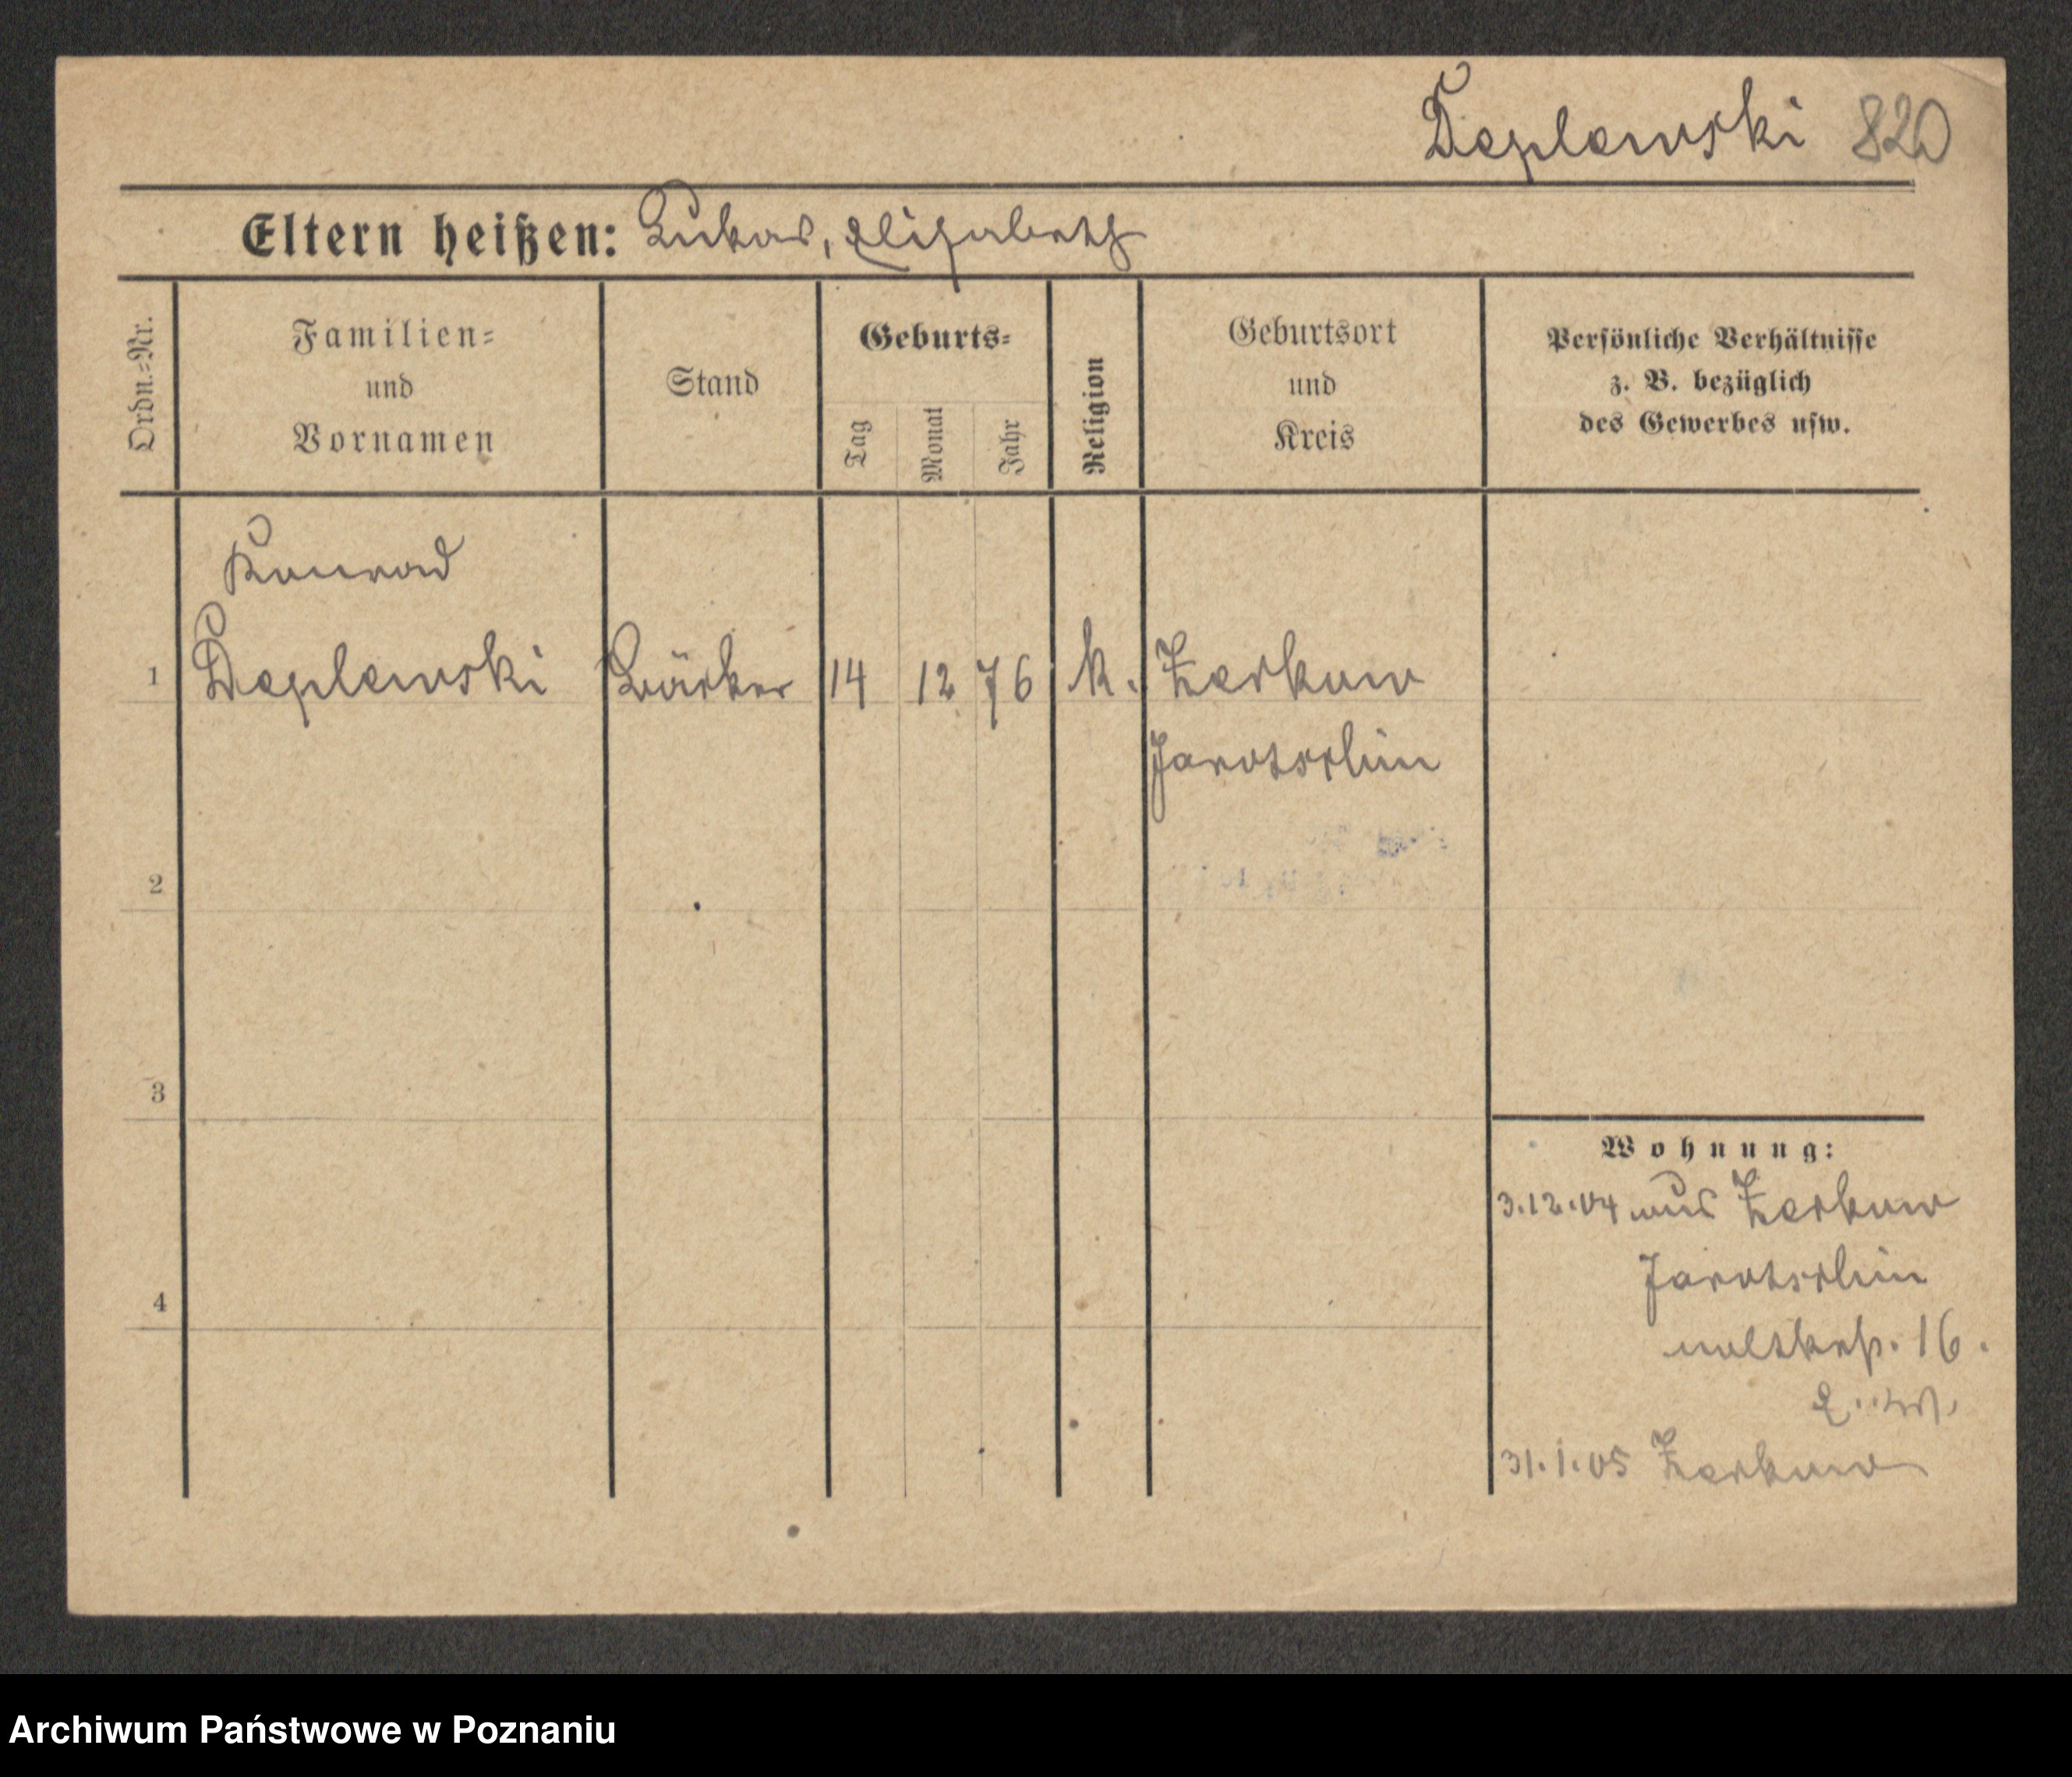 Deplewski 820
Eltern heißen: Lukas, Elisabeth
Ordn.=Nr.
Familien=
und
Vornamen
Stand
Geburts=
Tag
Monat
Jahr
Religion
Geburtsort
und
Kreis
Persönliche Verhältnisse
z. B. bezüglich
des Gewerbes usw.
Konrad
1 Deplewski Bäcker 14 12 76 k. Zerkow
Jarotschin
2
3
4
Wohnung:
3.12.04 aus Zerkow
Jarotschin
16.
31.1.05 Zerkow
Archiwum Państwowe w Poznaniu